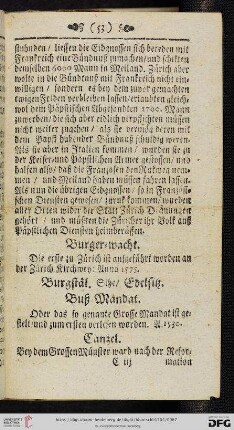 (53)
stuhnden / liessen die Eidgnossen sich bereden mit
Frankreich eine Bündnuß zumachen/und schikten
demselben 6000 Mann in Meiland. Zürich aber
wolte in die Bündnuß mit Frankreich nicht ein-
willigen / sondern es bey dem zuvor gemachten
ewigen Friden verbleiben lassen/erlaubten gleich-
wol dem Päpstischen Abgesandten 2700. Mann
zuwerben / die sich aber eidlich verpflichten müssen
nicht weiter zugehen / als sie vermög deren mit
dem Papst habender Bündnuß schuldig weren.
Als sie aber in Italien kommen / wurden sie zu
der Keiser- und Päpstlichen Armee gestossen / und
halfen also / daß die Franzosen den Rukweg nem-
men / und Meiland fahren müssen lassen.
Als nun die übrigen Eidgnossen / so in Franzosi-
schen Diensten gewesen / zuruk kommen / wurden
aller Orten wider die Statt Zürich Dröuungen
gehört / und müßten die Züricher ihr Volk auß
Päpstlichen Diensten heimberüffen.
Burger-wacht.
Die erste zu Zürich ist aufgeführt worden an
der Zürich Kirchweyh: Anno 1575.
Burgstäl, Sihe/ Edelsitz.
Buß Mandat.
Oder das so genante Grosse Mandat ist ge-
stellt und zum ersten verlesen worden. A. 1530.
Canzel.
Bey dem Grossen Münster ward nach der Refor-
C iij
mation
DFG